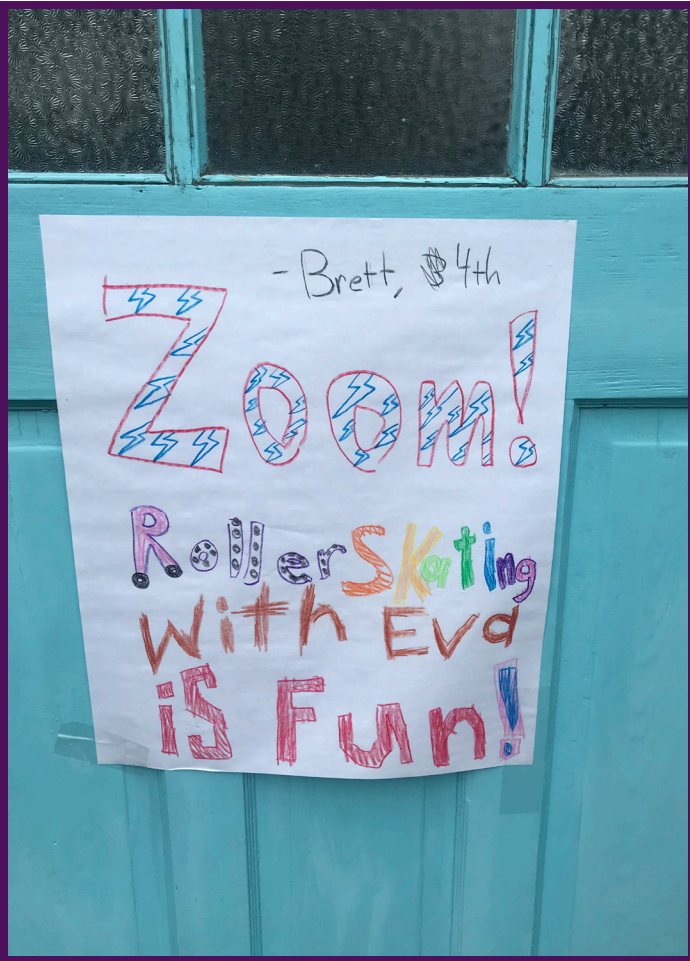 - Brett, 4th
Zoom!
Roller Skating
With Eva
is Fun!